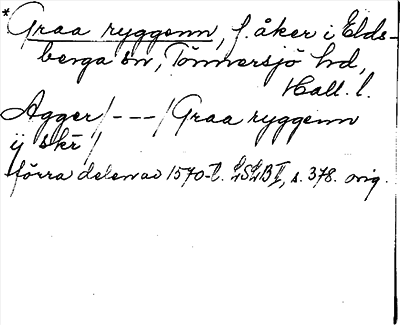 *Graa ryggenn, f. åker i Elds-
berga sn, Tönnersjö hd,
Hall. l.
Agger/---/Graa ryggenn
ÿ skr/
förra delen av 1570-t. LSLB II, s. 378. orig.